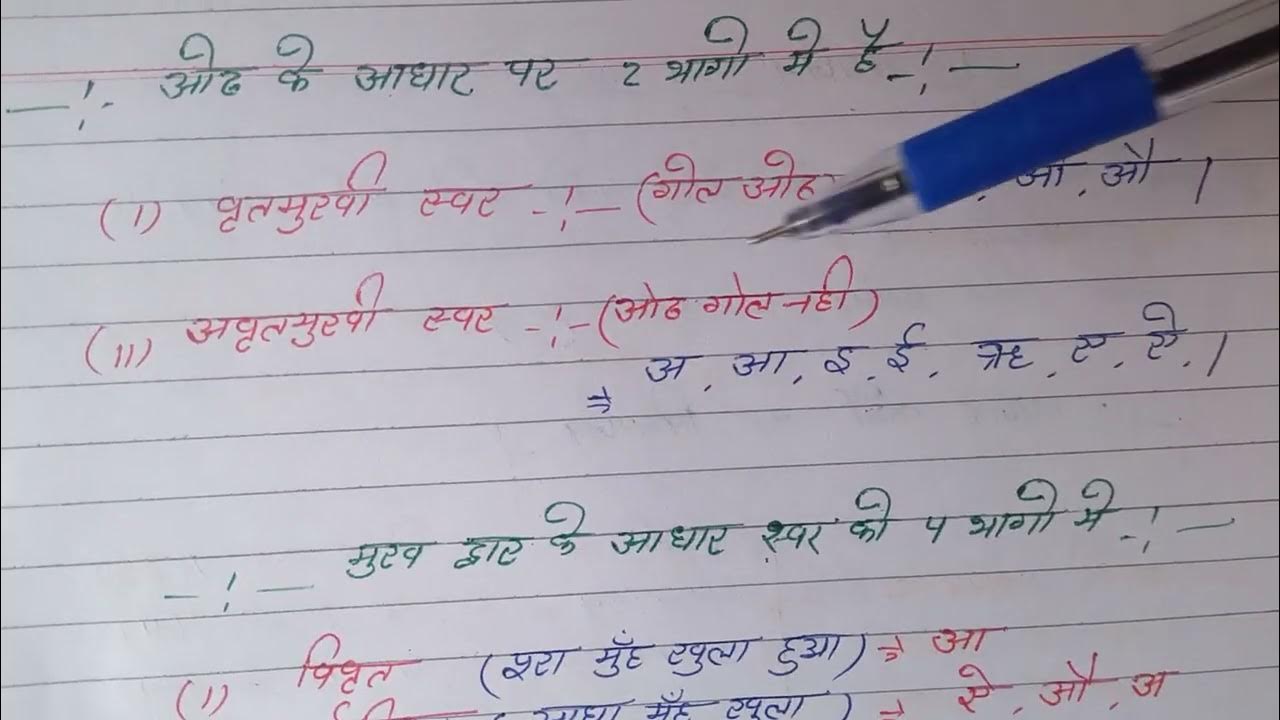 -:- ओठ के आधार पर 2 भागो मे है -:-
(I) वृतमुखी स्वर -:- (गोल ओठ , ओ, औ ।
(II) अवृतमुखी स्वर -:- (ओठ गोल नही)
⇒ अ, आ, इ, ई, ऋ, ए, ऐ, ।
-:- मुख द्वार के आधार स्वर को 4 भागो मे -:-
(I) विवृत (पूरा मुँह खुला हुआ) ⇒ आ
आधा मुँह खुला) ⇒ ऐ, औ, अ